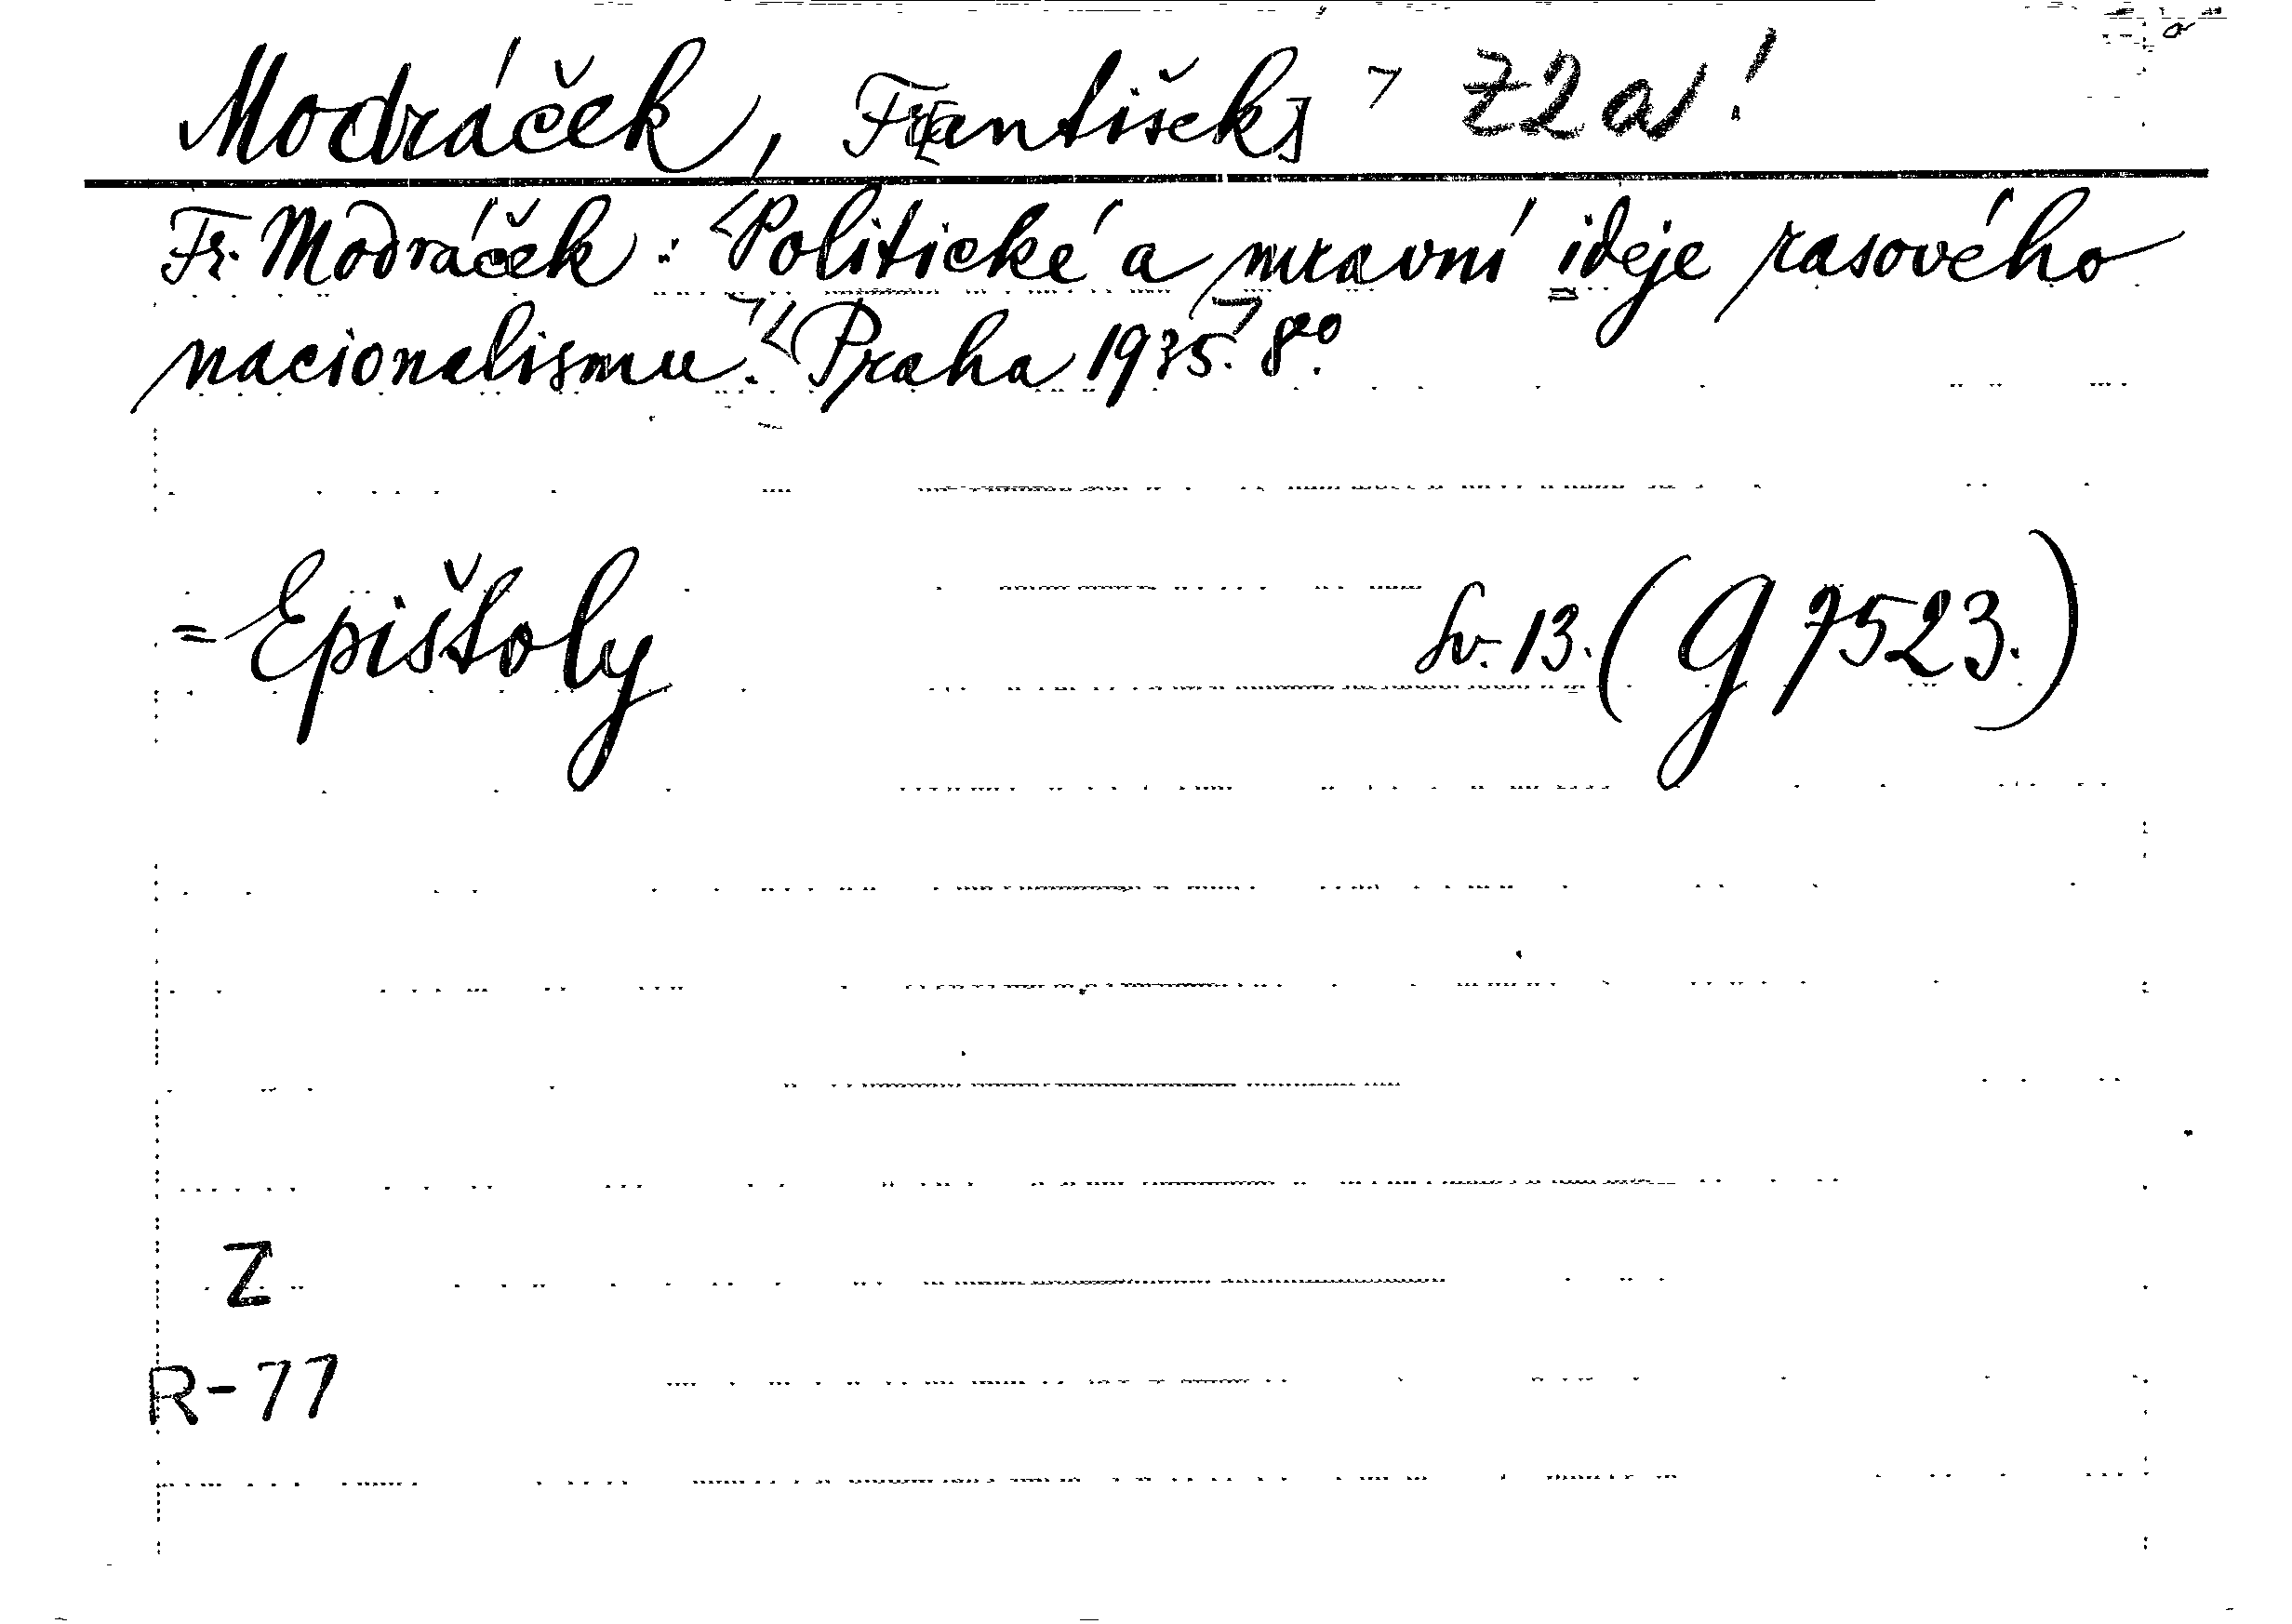 Modráček, Fr[antišek] Z2a!
Fr. Modráček: Politické a mravní ideje rasového
nacionalismu. Praha 1935. 8°.
= Epištoly Sv. 13. (G 7523.)
Z
R-77